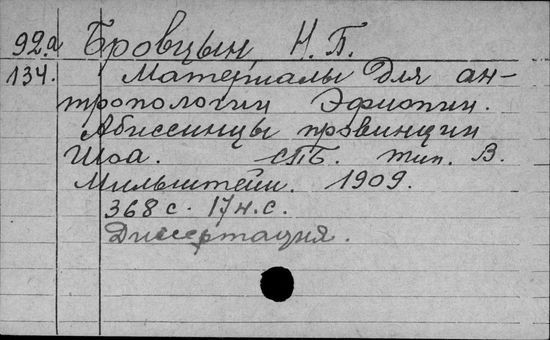 92.а Бровцын, Н. П.
134. Материалы для ан-
тропологии Эфиопии.
Абиссинцы провинции
Шоа. СПБ. тип. В.
Мильштейн. 1909.
368 с. 17 н. с.
Диссертация.